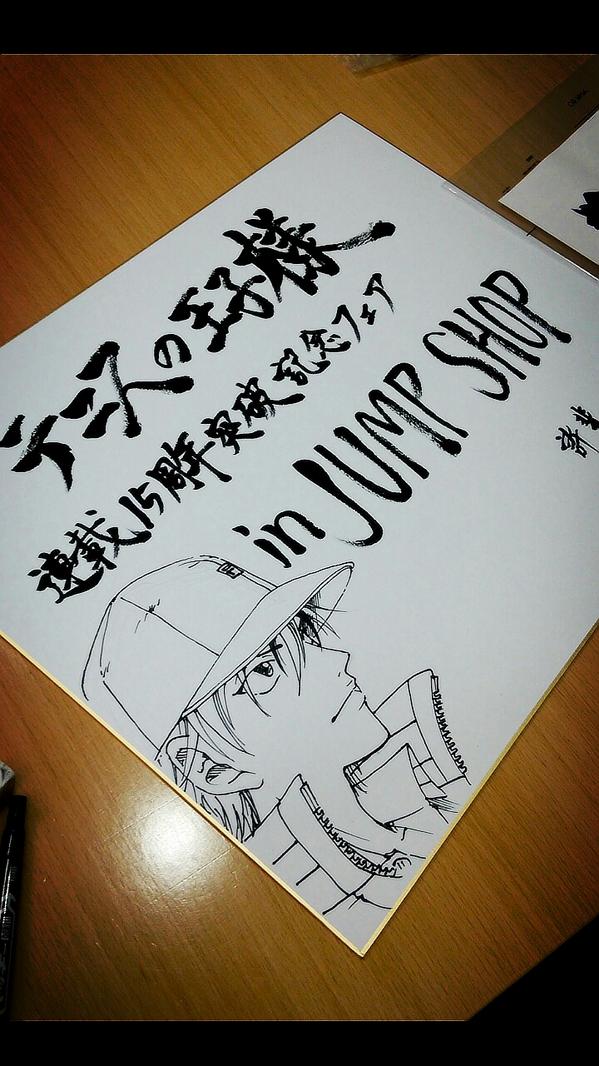 テニスの王子様
連載15周年突破記念フェア
in JUMP SHOP
許斐